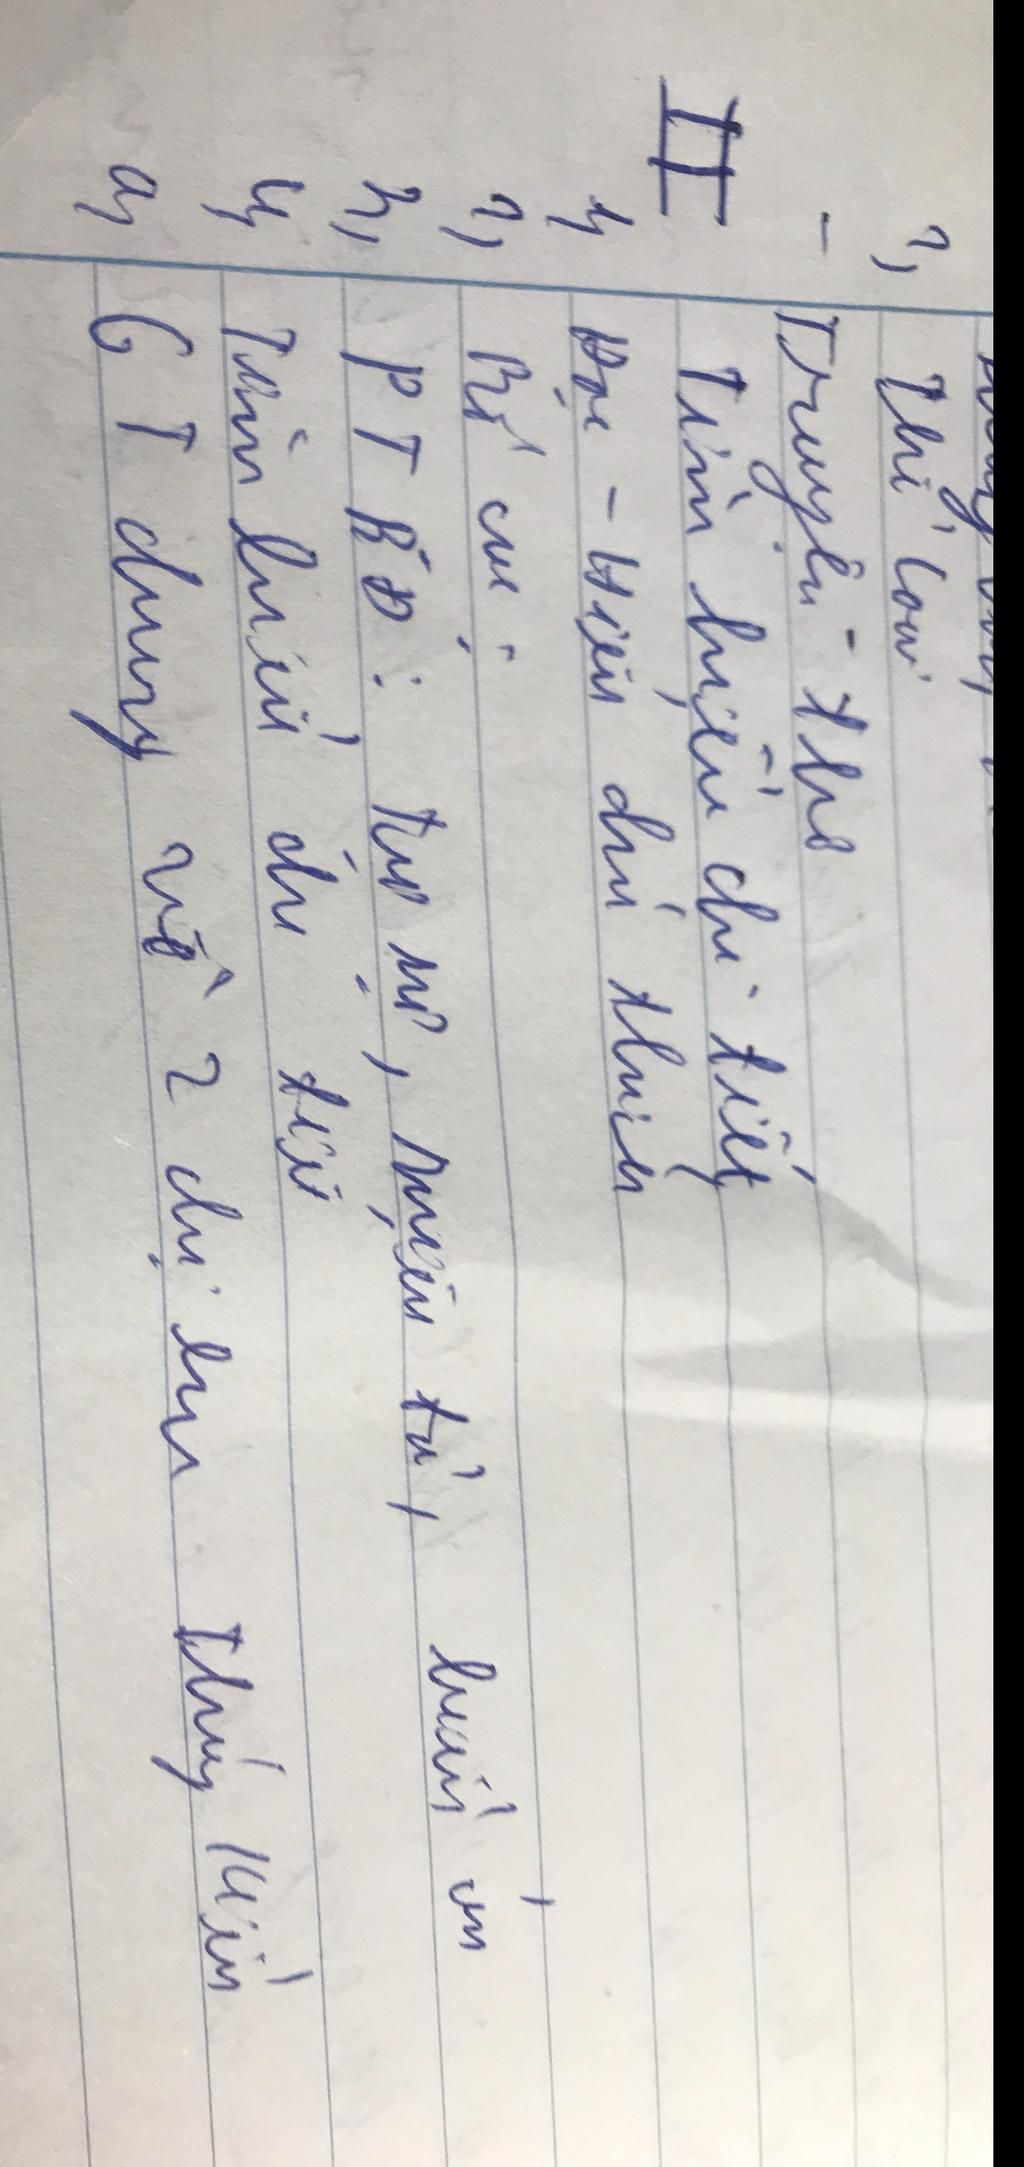 2, Thể loại
- Truyện thơ
II Tìm hiểu chi tiết
1, Đọc - Hiểu chú thích
2, Bố cục
3, PTBĐ: Tự sự, miêu tả, biểu cảm
4, Tìm hiểu chi tiết
a, GT chung về 2 chị em Thúy Kiều